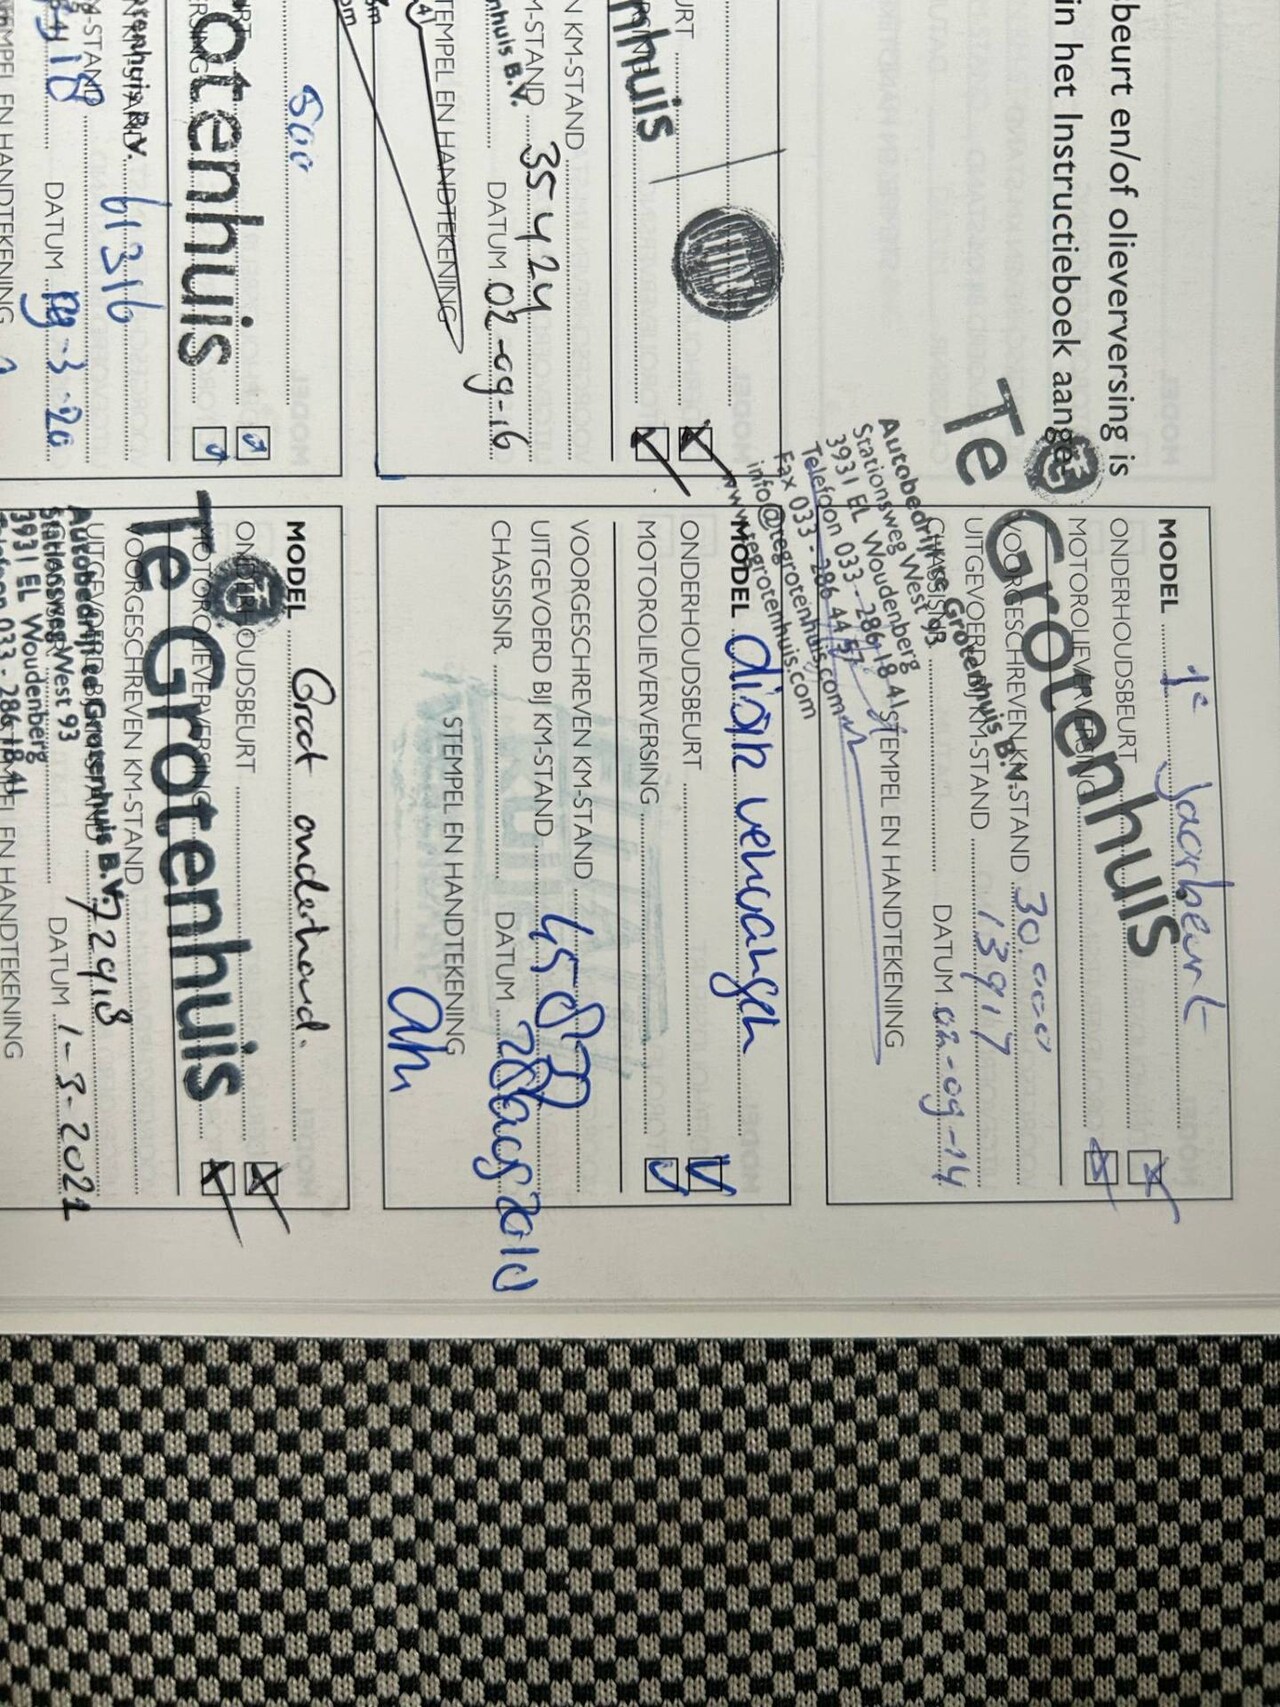 beurt en/of olieverversing is
in het Instructieboek aange
Te Grotenhuis
MODEL 1e Jaarbeurt
ONDERHOUDSBEURT
MOTOROLIEVERVERSING
VOORGESCHREVEN KM-STAND 30.000
UITGEVOERD BIJ KM-STAND 13917
CHASSISNR.
DATUM 02-09-14
STEMPEL EN HANDTEKENING
Autobedrijf te Grotenhuis B.V.
Stationsweg West 93
3931 EL Woudenberg
Telefoon 033 - 286 18 41
Fax 033 - 286 44 57
info@tegrotenhuis.com
www.tegrotenhuis.com
URT
nhuis
N KM-STAND
M-STAND 35424
nhuis B.V.
DATUM 02-09-16
TEMPEL EN HANDTEKENING
MODEL
ONDERHOUDSBEURT
MOTOROLIEVERSING
VOORGESCHREVEN KM-STAND
UITGEVOERD BIJ KM-STAND 45830
CHASSISNR.
DATUM 28aug2018
STEMPEL EN HANDTEKENING
500
otenhuis
M-STAND 61316
DATUM 09-3-20
EMPEL EN HANDTEKENING
MODEL Groot onderhoud.
ONDERHOUDSBEURT
MOTOROLIEVERVERSING
Te Grotenhuis
VOORGESCHREVEN KM-STAND
UITGEVOERD BIJ KM-STAND 72918
Autobedrijf te Grotenhuis B.V.
Stationsweg West 93
3931 EL Woudenberg
Telefoon 033 - 286 18 41
DATUM 1-3-2021
STEMPEL EN HANDTEKENING